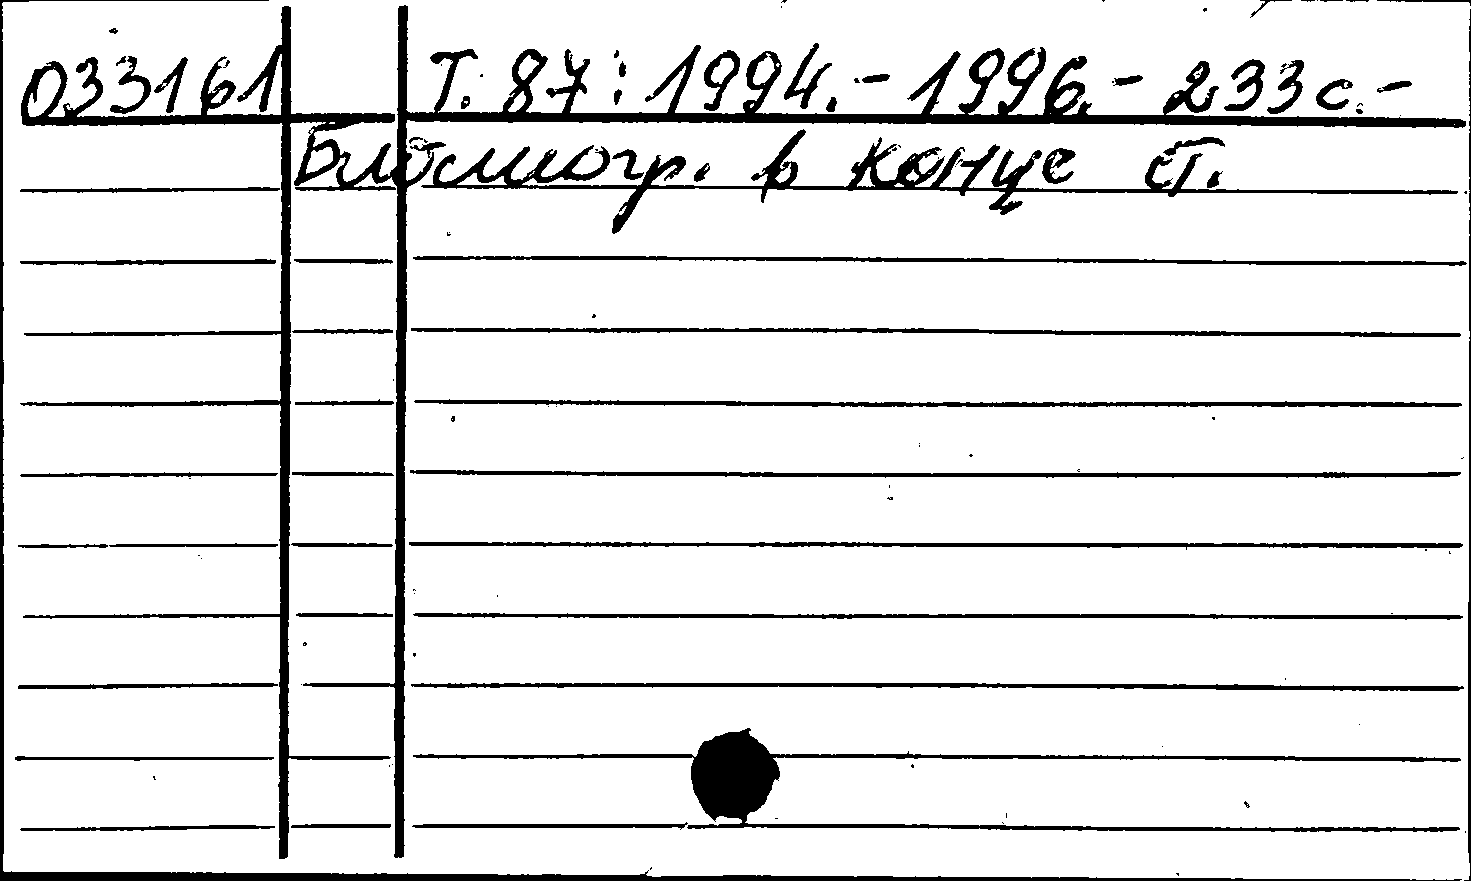 033161 Т. 87: 1994. - 1996. - 233 с. -
Библиогр. в конце ст.